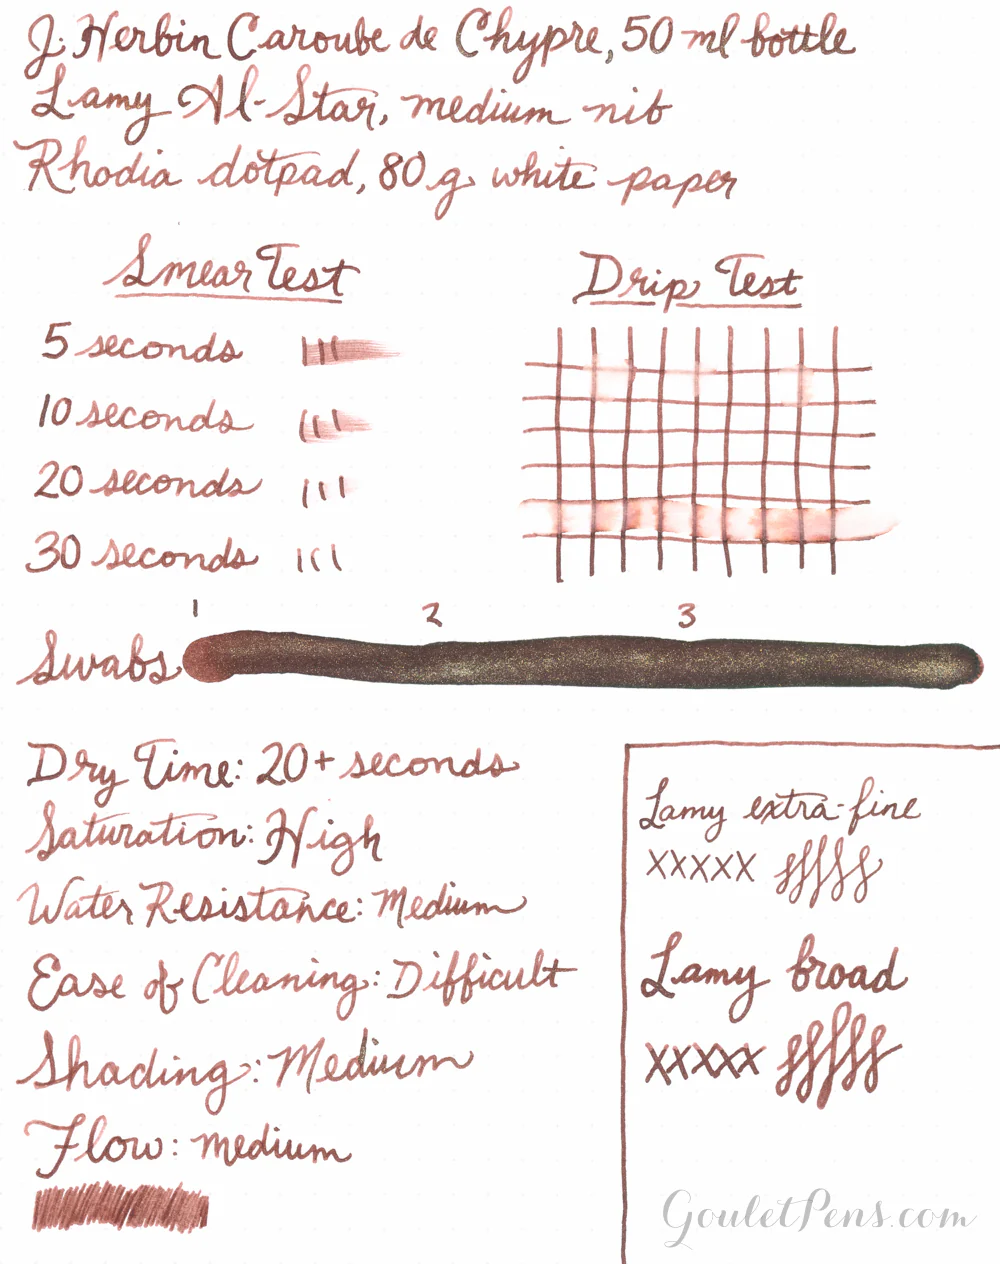 J. Herbin Caroube de Chypre, 50 ml bottle
Lamy Al-Star, medium nib
Rhodia dotpad, 80 g white paper
Smear Test
5 seconds
10 seconds
20 seconds
30 seconds
Drip Test
1 2 3
Swabs
Dry Time: 20+ seconds
Saturation: High
Water Resistance: Medium
Ease of Cleaning: Difficult
Shading: Medium
Flow: medium
Lamy extra-fine
XXXXX
Lamy broad
XXXXX
GouletPens.com